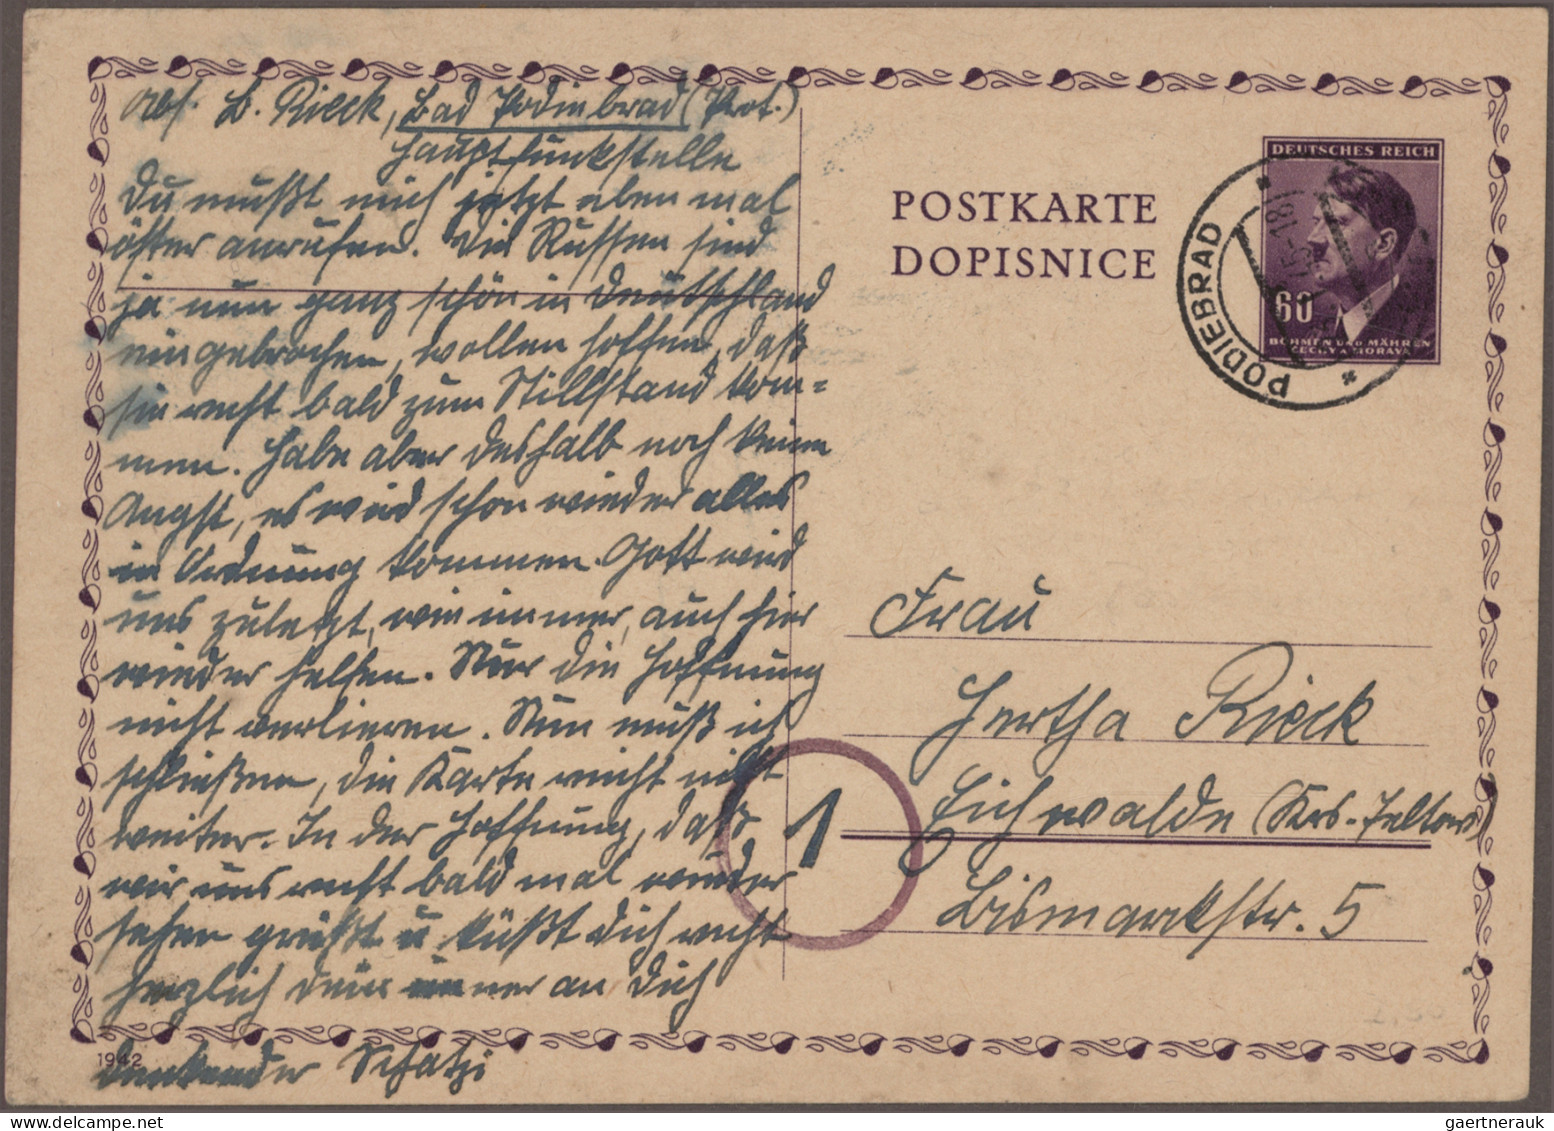 Abs. B. Rieck, Bad Podiebrad (Prot.)
Hauptfunkstelle
Du mußt mich jetzt eben mal
öfter anrufen. Die Russen sind
ja nun ganz schön in Deutschland
eingebrochen, wollen hoffen, daß
sie recht bald zum Stillstand kom=
men. Habe aber deshalb noch keine
Angst, es wird schon wieder alles
in Ordnung kommen. Gott wird
uns zuletzt, wie immer, auch hier
wieder helfen. Nur die Hoffnung
nicht verlieren. Nun muß ich
schließen, die Karte reicht nicht
weiter. In der Hoffnung, daß
wir uns recht bald mal wieder
sehen grüßt u küßt Dich recht
herzlich Dein immer an Dich
denkender Schatzi
1942
POSTKARTE
DOPISNICE
DEUTSCHES REICH
60
BÖHMEN UND MÄHREN
ČECHY A MORAVA
PODIEBRAD
Frau
Hertha Rieck
Eichwalde (Krs. Teltow)
Bismarckstr. 5
1
gaertnerauk